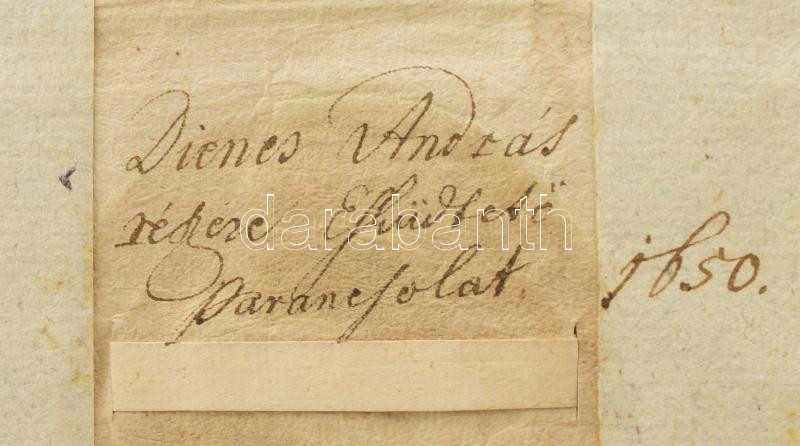 Dienes András
részére Esküdtető
Parancsolat.
1650.
darabanth